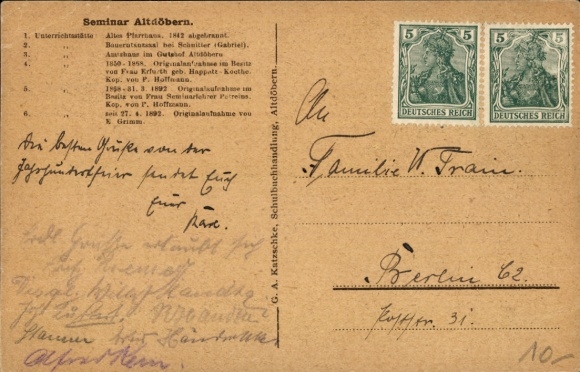 Seminar Altdöbern.
1. Unterrichtsstätte: Altes Pfarrhaus. 1842 abgebrannt.
2. „ Bauerntanzsaal bei Schnitter (Gabriel).
3. „ Amtshaus im Gutshof Altdöbern
4. „ 1850-1868. Originalaufnahme im Besitz
von Frau Erfurth geb. Happatz-Koethe.
Kop. von P. Hoffmann.
5. „ 1868-31. 3. 1892. Originalaufnahme im
Besitz von Frau Seminarlehrer Petreins.
Kop. von P. Hoffmann.
6. „ seit 27. 4. 1892. Originalaufnahme von
K. Grimm.
Die besten Grüße von der
Jahrhundertfeier sendet Euch
Euer
Karl.
Grüße erlaubt sich
Alfred
G. A. Katzschke, Schulbuchhandlung, Altdöbern.
5 5
DEUTSCHES REICH
5 5
DEUTSCHES REICH
An
Familie W. Train.
Berlin C2.
Poststr. 31.
10-